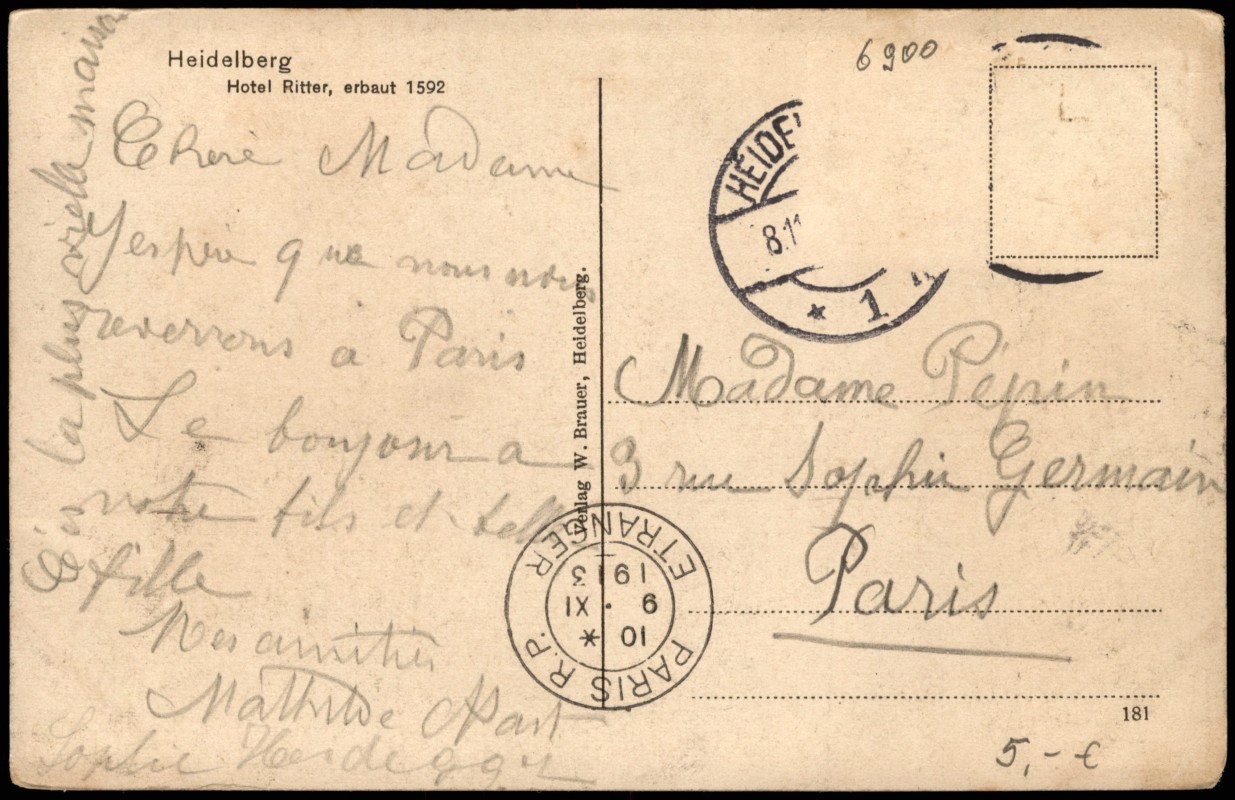 Heidelberg
Hotel Ritter, erbaut 1592
Chere Madame
J'espere que nous nous
reverrons a Paris
Le bonjour a
votre fils et belle
fille
Mes amitiés
Mathilde
Sophie Heidegger
C'es la plus vielle
Verlag W. Brauer, Heidelberg.
6900
HEIDEL
8.11
* 1
Madame Pépin
3 rue Sophie Germain
Paris
PARIS R.P. ETRANGER
10 *
9 · XI
1913
181
5,- €